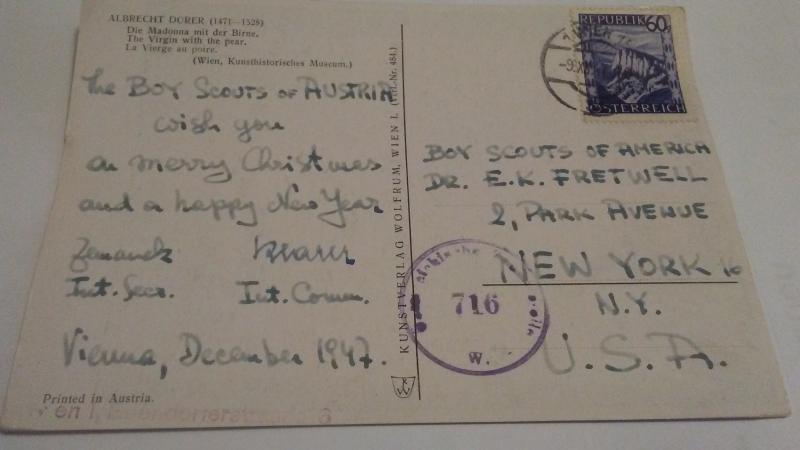 ALBRECHT DÜRER (1471—1528)
Die Madonna mit der Birne.
The Virgin with the pear.
La Vierge au poire.
(Wien, Kunsthistorisches Museum.)
The BOY SCOUTS OF AUSTRIA
wish you
a merry Christmas
and a happy New Year
Zemanek
Int. Secr. Int. Comm.
Vienna, December 1947.
Printed in Austria.
KUNSTVERLAG WOLFRUM, WIEN I. Nr. 484.)
REPUBLIK 60
ÖSTERREICH
BOY SCOUTS OF AMERICA
DR. E. K. FRETWELL
2, PARK AVENUE
NEW YORK 16
N.Y.
U.S.A.
716
W.